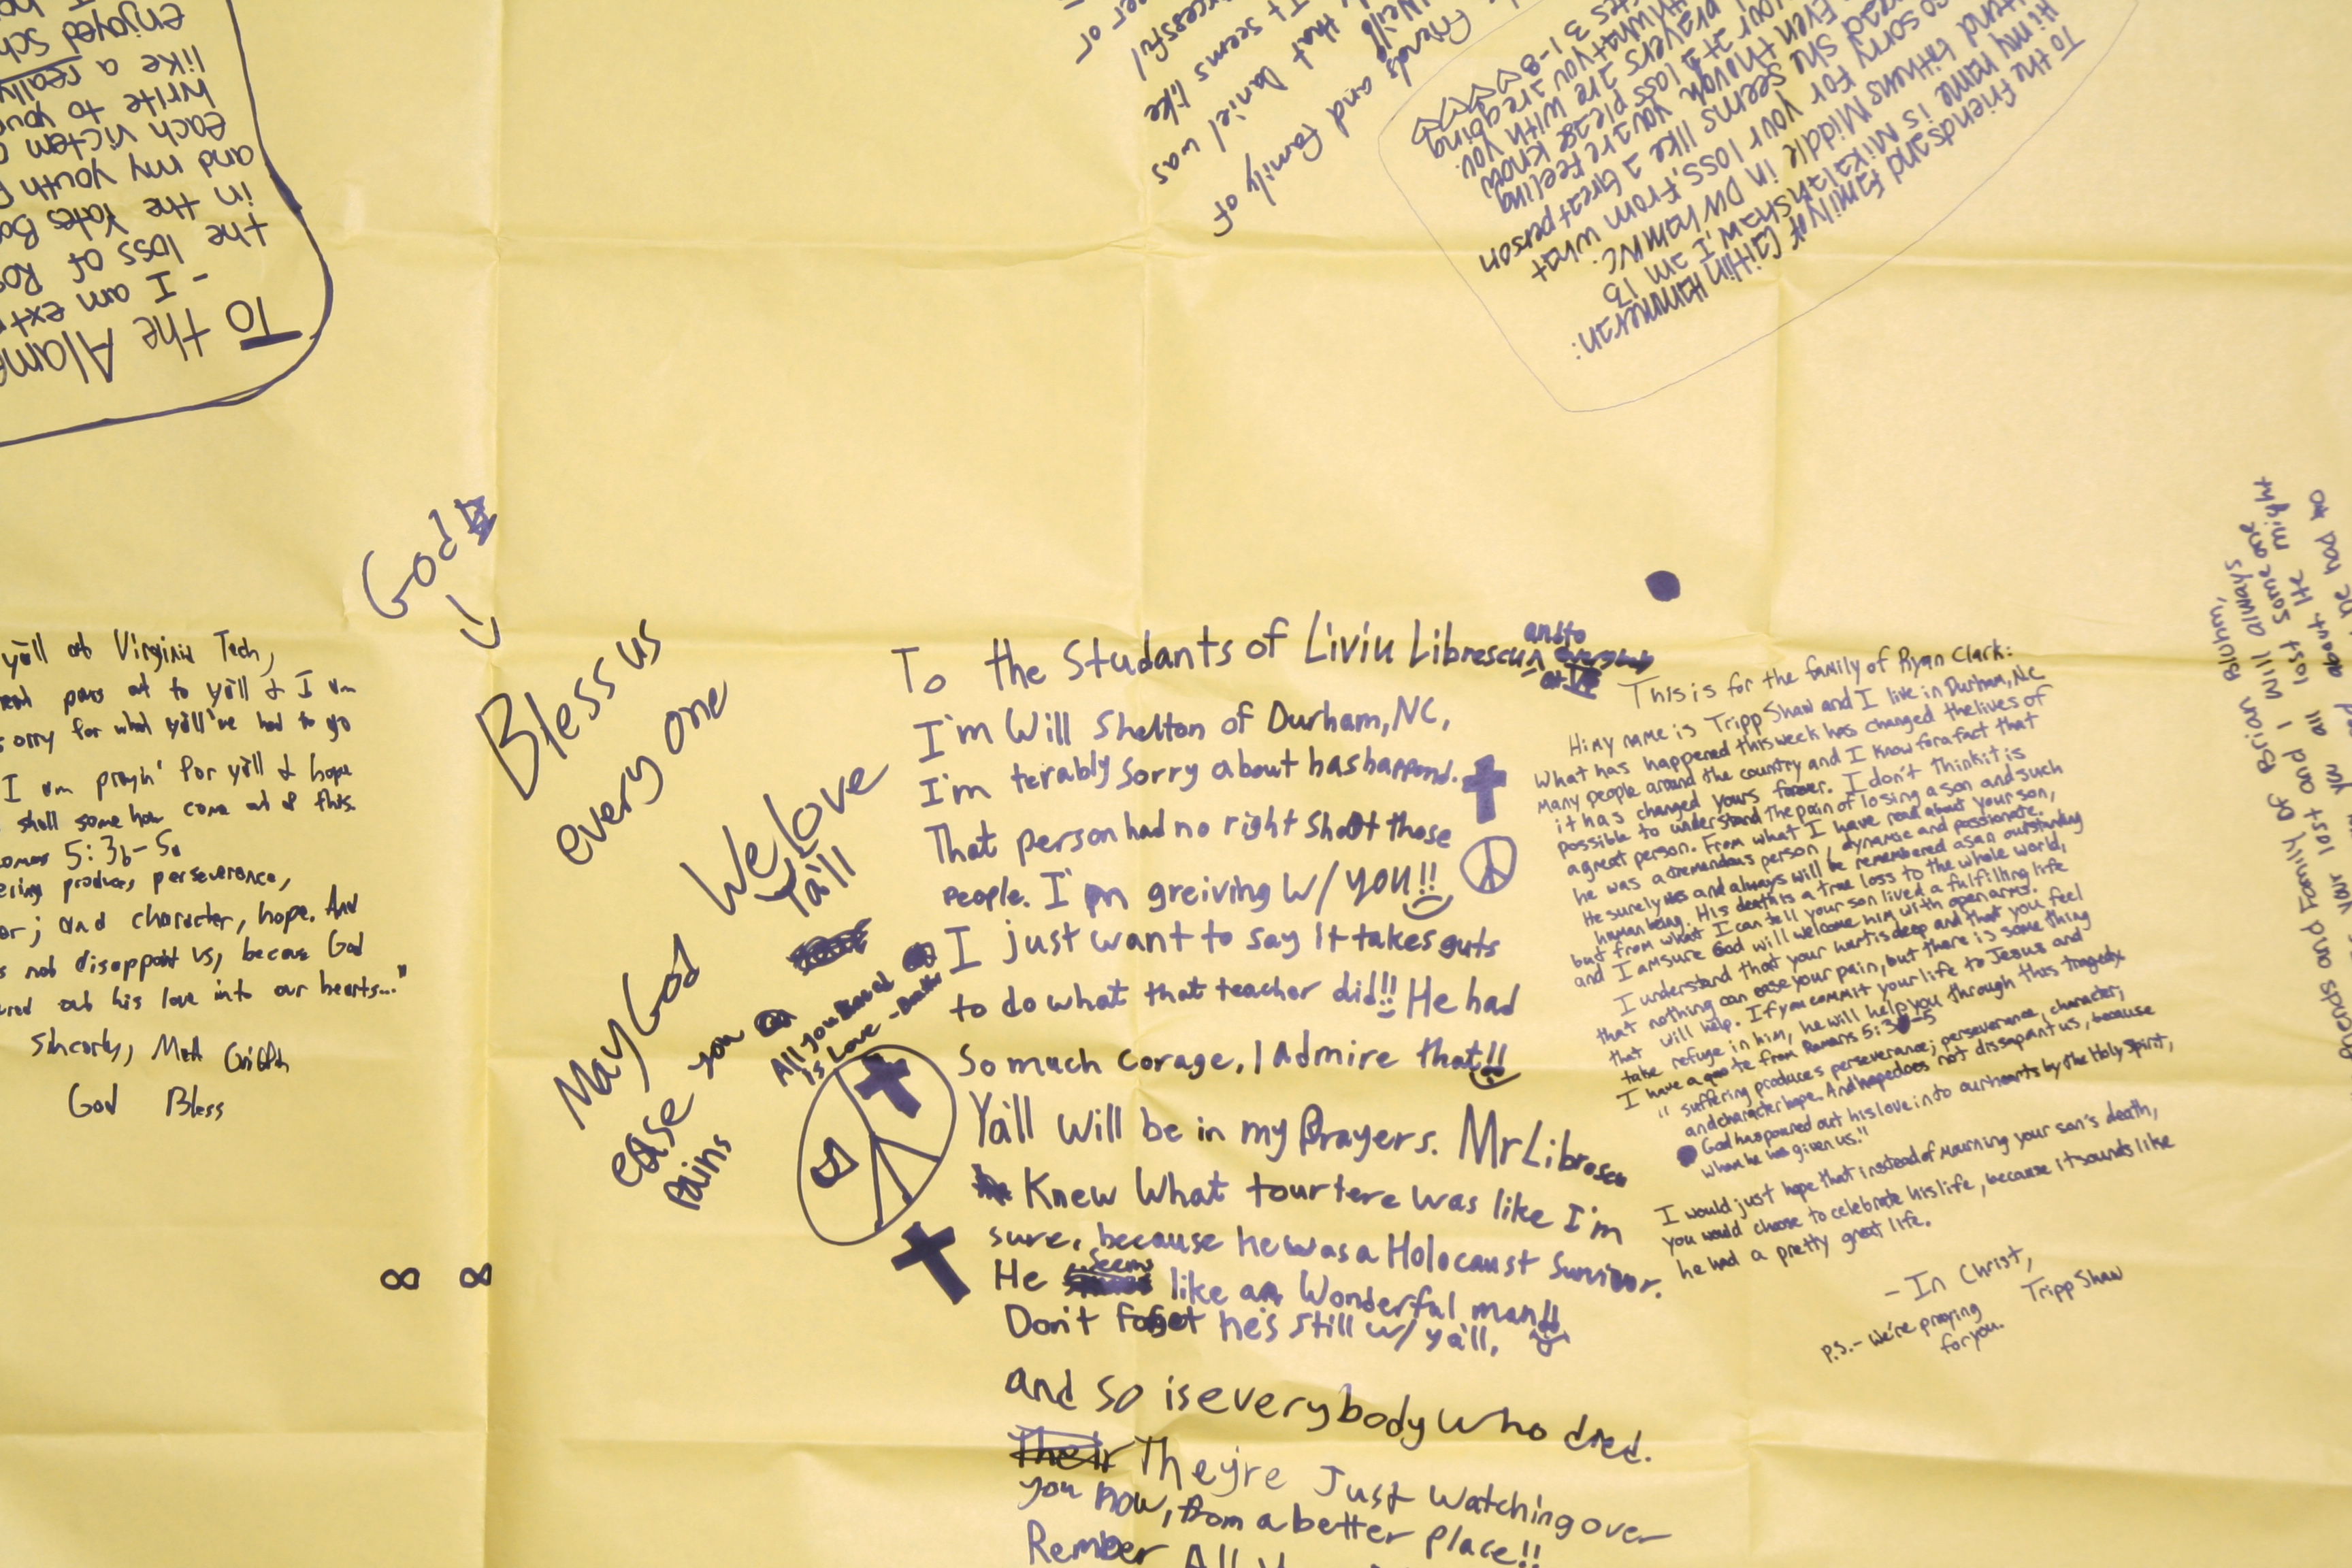 To the Alam
- I am ext
the loss of Ros
in the Yates Ba
and my youth
each victem
write to you
like a really
enjoyed Sch
friends and family of
that Daniel was
It seems like
cessful
er or
To the friends and family of Caitlin Hammeran:
Hi my name is Mikala Shaw, I am 13
Middle in Durham NC.
so sorry for your loss. From what
she seems like a great person
Even though you are feeling
loss please know
prayers are with you.
1-8
y'all at Virginia Tech,
out to y'all & I am
sorry for what y'all've had to go
I am prayin' for y'all & hope
shall some how come out of this.
5:3b-5a
ering produces perseverance,
or; and character, hope. And
s not disappoint us, becaus God
ured out his love into our hearts..."
Sincerly, Matt Griffith
God Bless
∞ ∞
God
Bless us
every one
We love
Ya'll
May God
ease you
pains
All you need
is Love
To the Studants of Liviu Librescu and to everybody at VT
I'm Will Shelton of Durham, NC,
I'm terably sorry about has happend.
That person had no right Shoot those
people. I'm greiving w/ YOU!!
I just want to say It takes guts
to do what that teacher did!! He had
So much corage, I Admire that!!
Ya'll will be in my Prayers. Mr Librescu
Knew What tourtere was like I'm
sure, because he was a Holocaust Survivor.
He seems like a Wonderful man!!
Don't forget he's still w/ ya'll,
and so is everybody who died.
Their They're Just Watching over
you now, from a better place!!
Rember All
This is for the family of Ryan Clark:
Hi my name is Tripp Shaw and I live in Durham, NC
What has happened this week has changed the lives of
Many people around the country and I know for a fact that
it has changed yours forever. I don't think it is
possible to understand the pain of losing a son and such
a great person. From what I have read about your son,
he was a tremendous person, dynamic and passionate.
He surely was and always will be remembered as an outstanding
human being. His death is a true loss to the whole world,
but from what I can tell your son lived a fulfilling life
and I am sure God will welcome him with open arms.
I understand that your hurt is deep and that you feel
that nothing can ease your pain, but there is some thing
that will help. If you commit your life to Jesus and
take refuge in him, he will help you through this tragedy.
I have a quote from Romans 5:3-5
"suffering produces perseverance; perseverance, character;
and character hope. And hope does not dissapant us, because
God has poured out his love in to our hearts by the Holy Spirit,
whom he has given us."
I would just hope that instead of mourning your son's death,
you would choose to celebrate his life, because it sounds like
he had a pretty great life.
- In Christ,
Tripp Shaw
P.S.- We're praying
for you.
iends and Family of Brian Bluhm,
lost and I will always
all lost some one
about. He might
he had to